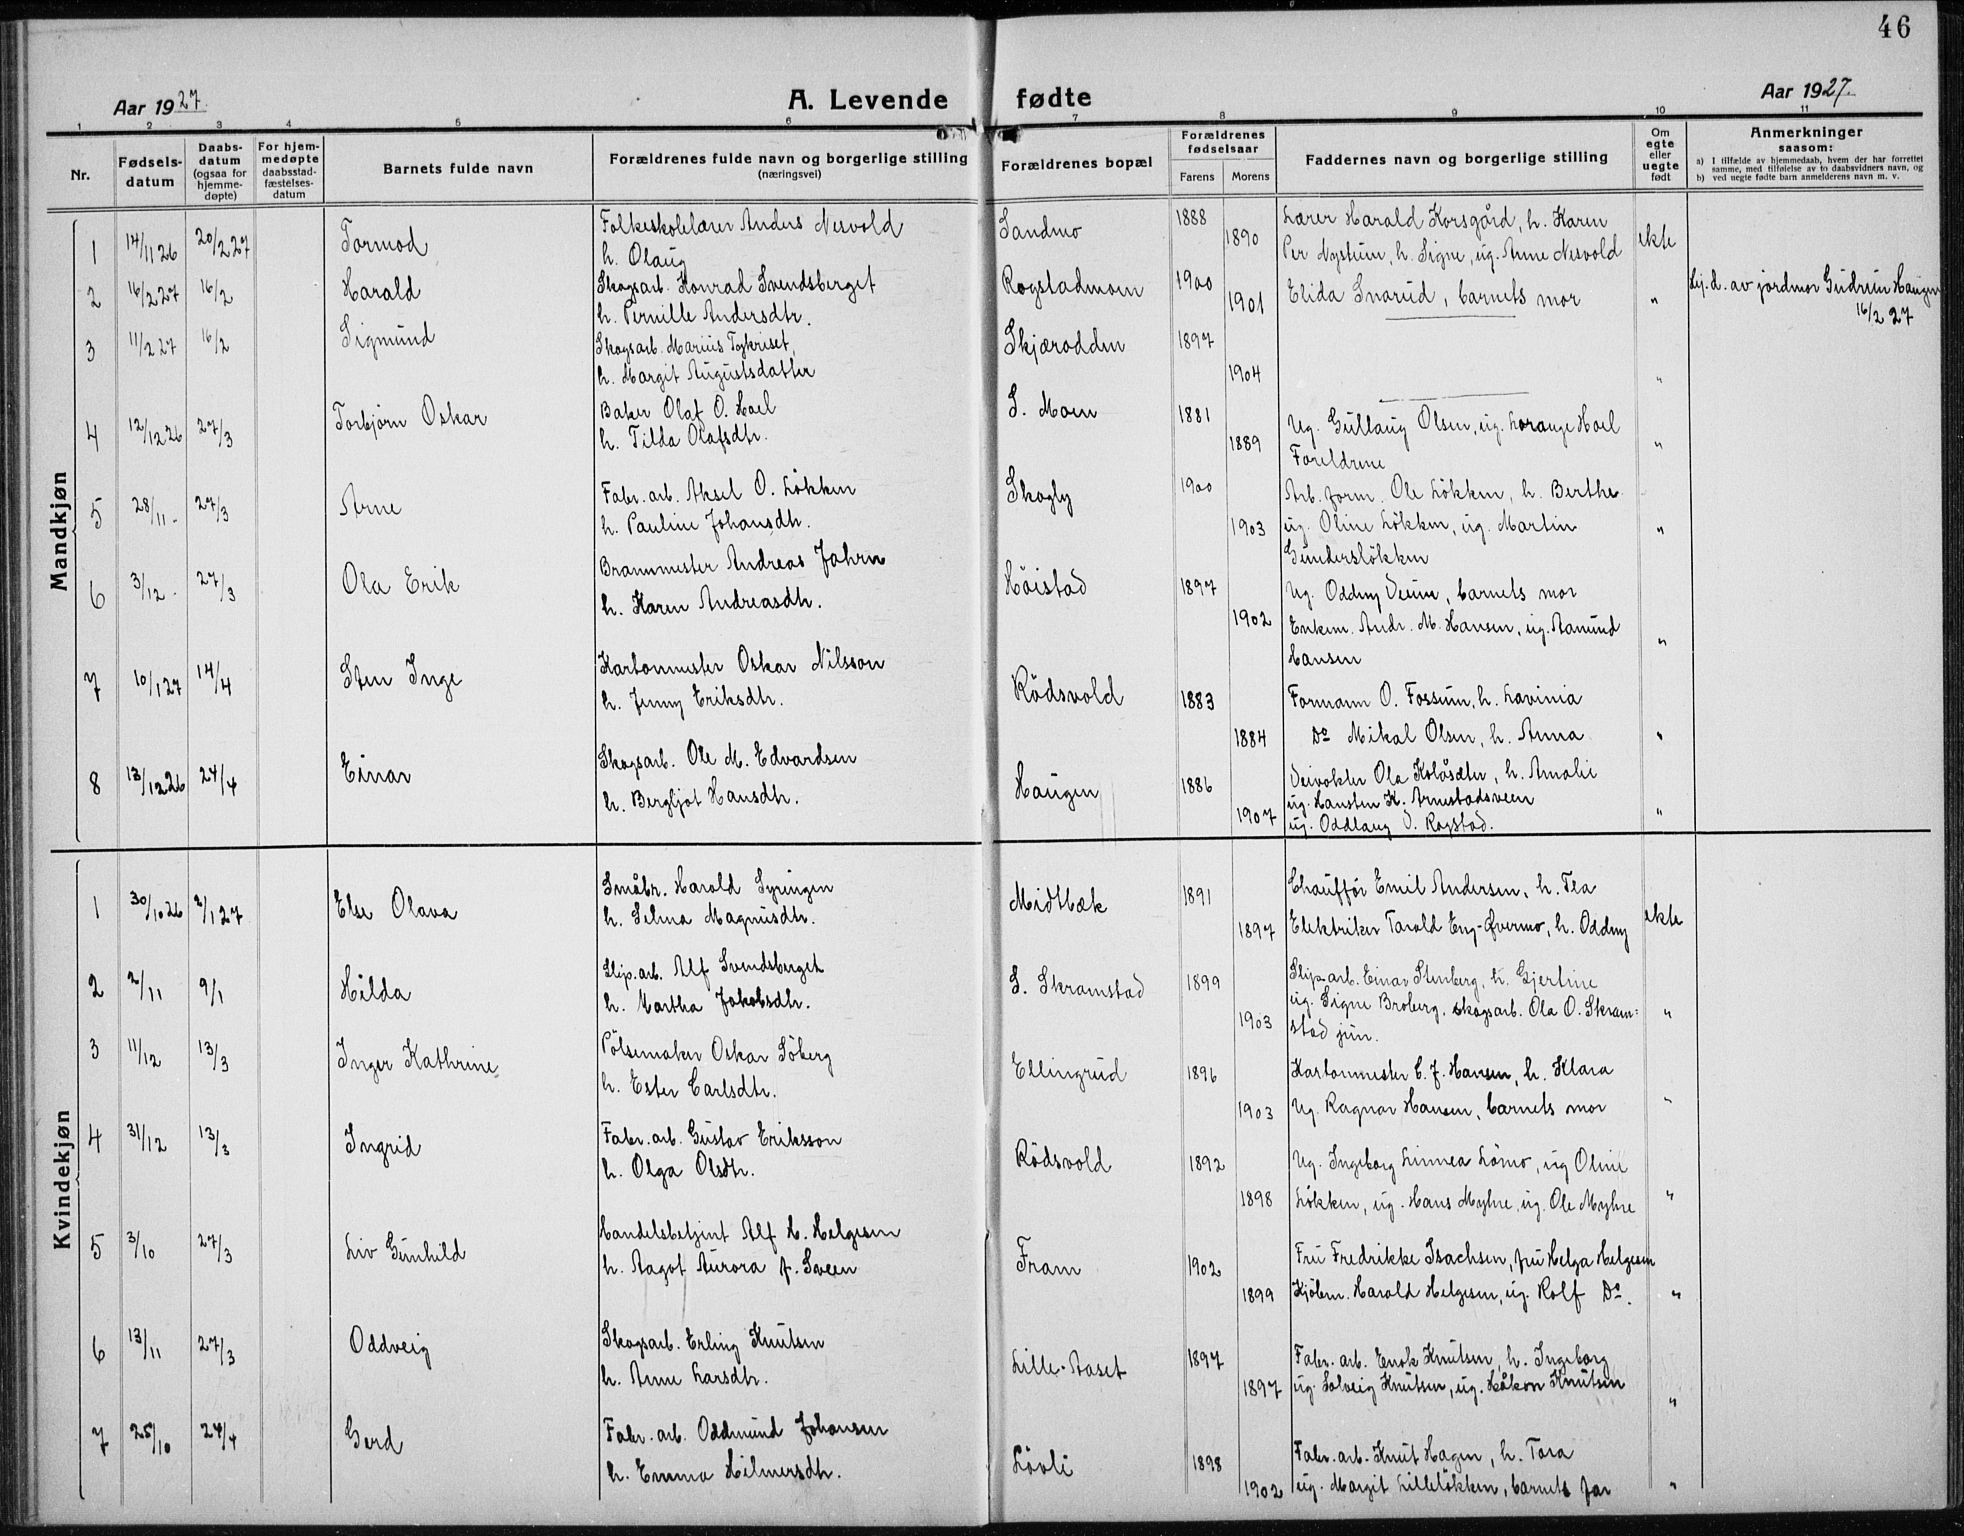 46
Aar 1927. A. Levende fødte Aar 1927.
1 2 3 4 5 6 7 8 9 10 11
Nr. Fødsels-datum Daabs-datum (ogsaa for hjemme-døpte) For hjem-medøpte daabsstad-fæstelses-datum Barnets fulde navn Forældrenes fulde navn og borgerlige stilling (næringsvei) Forældrenes bopæl Forældrenes fødselsaar Farens Morens Faddernes navn og borgerlige stilling Om egte eller uegte født Anmerkninger saasom:
a) I tilfælde av hjemmedaab, hvem der har forrettet samme, med tilføielse av to daabsvidners navn, og
b) ved uegte fødte barn anmelderens navn m. v.
Mandkjøn
1 14/11 26 20/2 27 Tormod Folkeskolelærer Anders Nesvold Sandmo 1888 Lærer Harald Korsgård, h. Karen
h. Olaug 1890 Per Nystum, h. Signe, ug. Anne Nesvold ekte
2 16/2 27 16/2 Harald Skogsarb. Konrad Svendsberget Rogstadmoen 1900 Elida Snarud, barnets mor " Hj. d. av jordmor Gudrun Haugen
h. Pernille Andersdtr. 1901 16/2 27
3 11/2 27 16/2 Sigmund Skogsarb. Marius Tykriset, Skjærodden 1897
h. Margit Augustsdatter 1904 "
4 12/12 26 27/3 Torbjørn Oskar Baker Olaf O. Hoel S. Moen 1881 Ug. Gullaug Olsen, ug. Lorange Hoel
h. Tilda Olafsdtr. 1889 Foreldrene "
5 28/11 - 27/3 Arne Fabr. arb. Aksel O. Løkken Skogly 1900 Arb. form. Ole Løkken, h. Berthe
h. Pauline Johansdtr. 1903 ug. Oline Løkken, ug. Martin "
Gundersløkken
6 3/12 - 27/3 Ola Erik Brannmester Andreas Jahrn Høistad 1897 Ug. Oddny Veum, barnets mor
h. Karen Andreasdtr. 1902 Enkem. Andr. M. Hansen, ug. Aamund "
Hansen
7 10/1 27 14/4 Sten Inge Kartonmester Oskar Nilsson Rødsvold 1883 Formann O. Fossum, h. Lavinia
h. Jenny Eriksdtr. 1884 Do Mikal Olsen, h. Anna "
8 13/12 26 24/4 Einar Skogsarb. Ole M. Edvardsen Haugen 1886 Veivokter Ola Kolåsæter, h. Amalie
h. Bergljot Hansdtr. 1907 ug. Hansten K. Arnestadsveen "
ug. Oddlaug O. Rogstad.
Kvindekjøn
1 30/10 26 2/1 27 Else Olava Småbr. Harald Syringen Midtbæk 1891 Chauffør Emil Andersen, h. Tea
h. Selma Magnusdtr. 1897 Elektriker Tarald Eng-Øvermo, h. Oddny ekte
2 2/11 9/1 Hilda Slip. arb. Alf Svendsberget S. Skramstad 1899 Slip. arb. Einar Stenberg, h. Gjertine
h. Martha Jakobsdtr. 1903 ug. Signe Broberg, skogsarb. Ola O. Skram= "
stad jun.
3 11/12 13/3 Inger Kathrine Pølsemaker Oskar Søberg Ellingrud 1896 Kartonmester C. J. Hansen, h. Klara
h. Ester Carlsdtr. 1903 Ug. Ragnar Hansen, barnets mor "
4 31/12 13/3 Ingrid Fabr. arb. Gustav Eriksson Rødsvold 1892 Ug. Ingeborg Linnea Lømo, ug Oline
h. Olga Olsdtr. 1898 Løkken, ug. Hans Myhre, ug. Ole Myhre "
5 3/10 27/3 Liv Gunhild Handelsbetjent Alf H. Helgesen Fram 1902 Fru Fredrikke Isachsen, fru Helga Helgesen
h. Aagot Aurora f. Sveen 1899 Kjøbm. Harald Helgesen, ug. Rolf Do. "
6 13/11 27/3 Oddveig Skogsarb. Erling Knutsen Lille-Aaset 1897 Fabr. arb. Enok Knutsen, h. Ingeborg
h. Anne Larsdtr. 1897 ug. Solveig Knutsen, ug. Håkon Knutsen "
7 25/10 24/4 Gerd Fabr. arb. Oddmund Johansen Løvli 1898 Fabr. arb. Knut Hagen, h. Tora
h. Emma Hilmersdtr. 1902 ug. Margit Lilleløkken, barnets far "